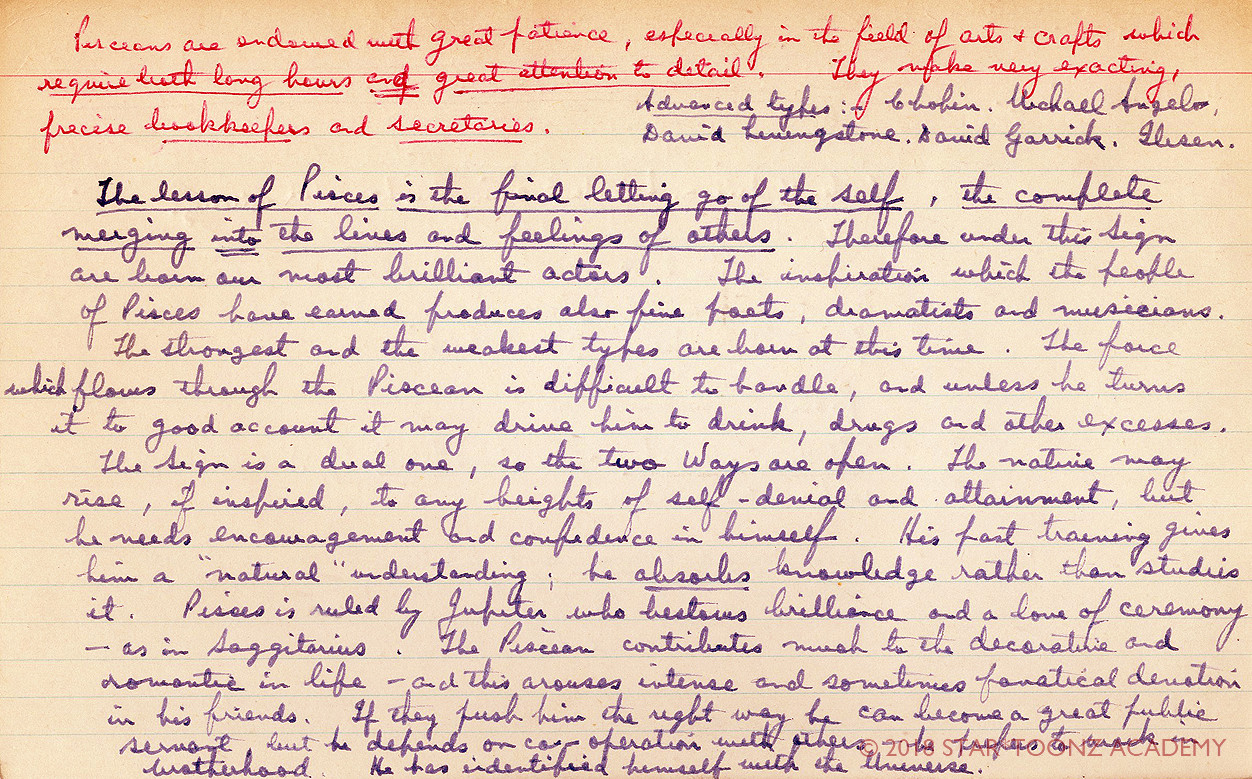 Pisceans are endowed with great patience, especially in the field of arts & crafts which
require both long hours and great attention to detail. They make very exacting,
precise bookkeepers and secretaries.
Advanced types :- Chopin. Michael Angelo,
David Livingstone. David Garrick. Ibsen.
The lesson of Pisces is the final letting go of the self, the complete
merging into the lives and feelings of others. Therefore under this sign
are born our most brilliant actors. The inspiration which the people
of Pisces have earned produces also fine poets, dramatists and musicians.
The strongest and the weakest types are born at this time. The force
which flows through the Piscean is difficult to handle, and unless he turns
it to good account it may drive him to drink, drugs and other excesses.
The sign is a dual one, so the two Ways are open. The nature may
rise, if inspired, to any heights of self-denial and attainment, but
he needs encouragement and confidence in himself. His past training gives
him a "natural" understanding; he absorbs knowledge rather than studies
it. Pisces is ruled by Jupiter who bestows brilliance and a love of ceremony
- as in Saggitarius. The Piscean contributes much to the decorative and
romantic in life - and this arouses intense and sometimes fanatical devotion
in his friends. If they push him the right way he can become a great public
servant, but he depends on co-operation with others - he prefers to work in
brotherhood. He has identified himself with the Universe.
© 2018 STAR-TOONZ ACADEMY